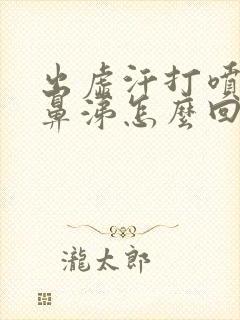 出虛汗打噴
鼻涕怎麼回
瀧太郎